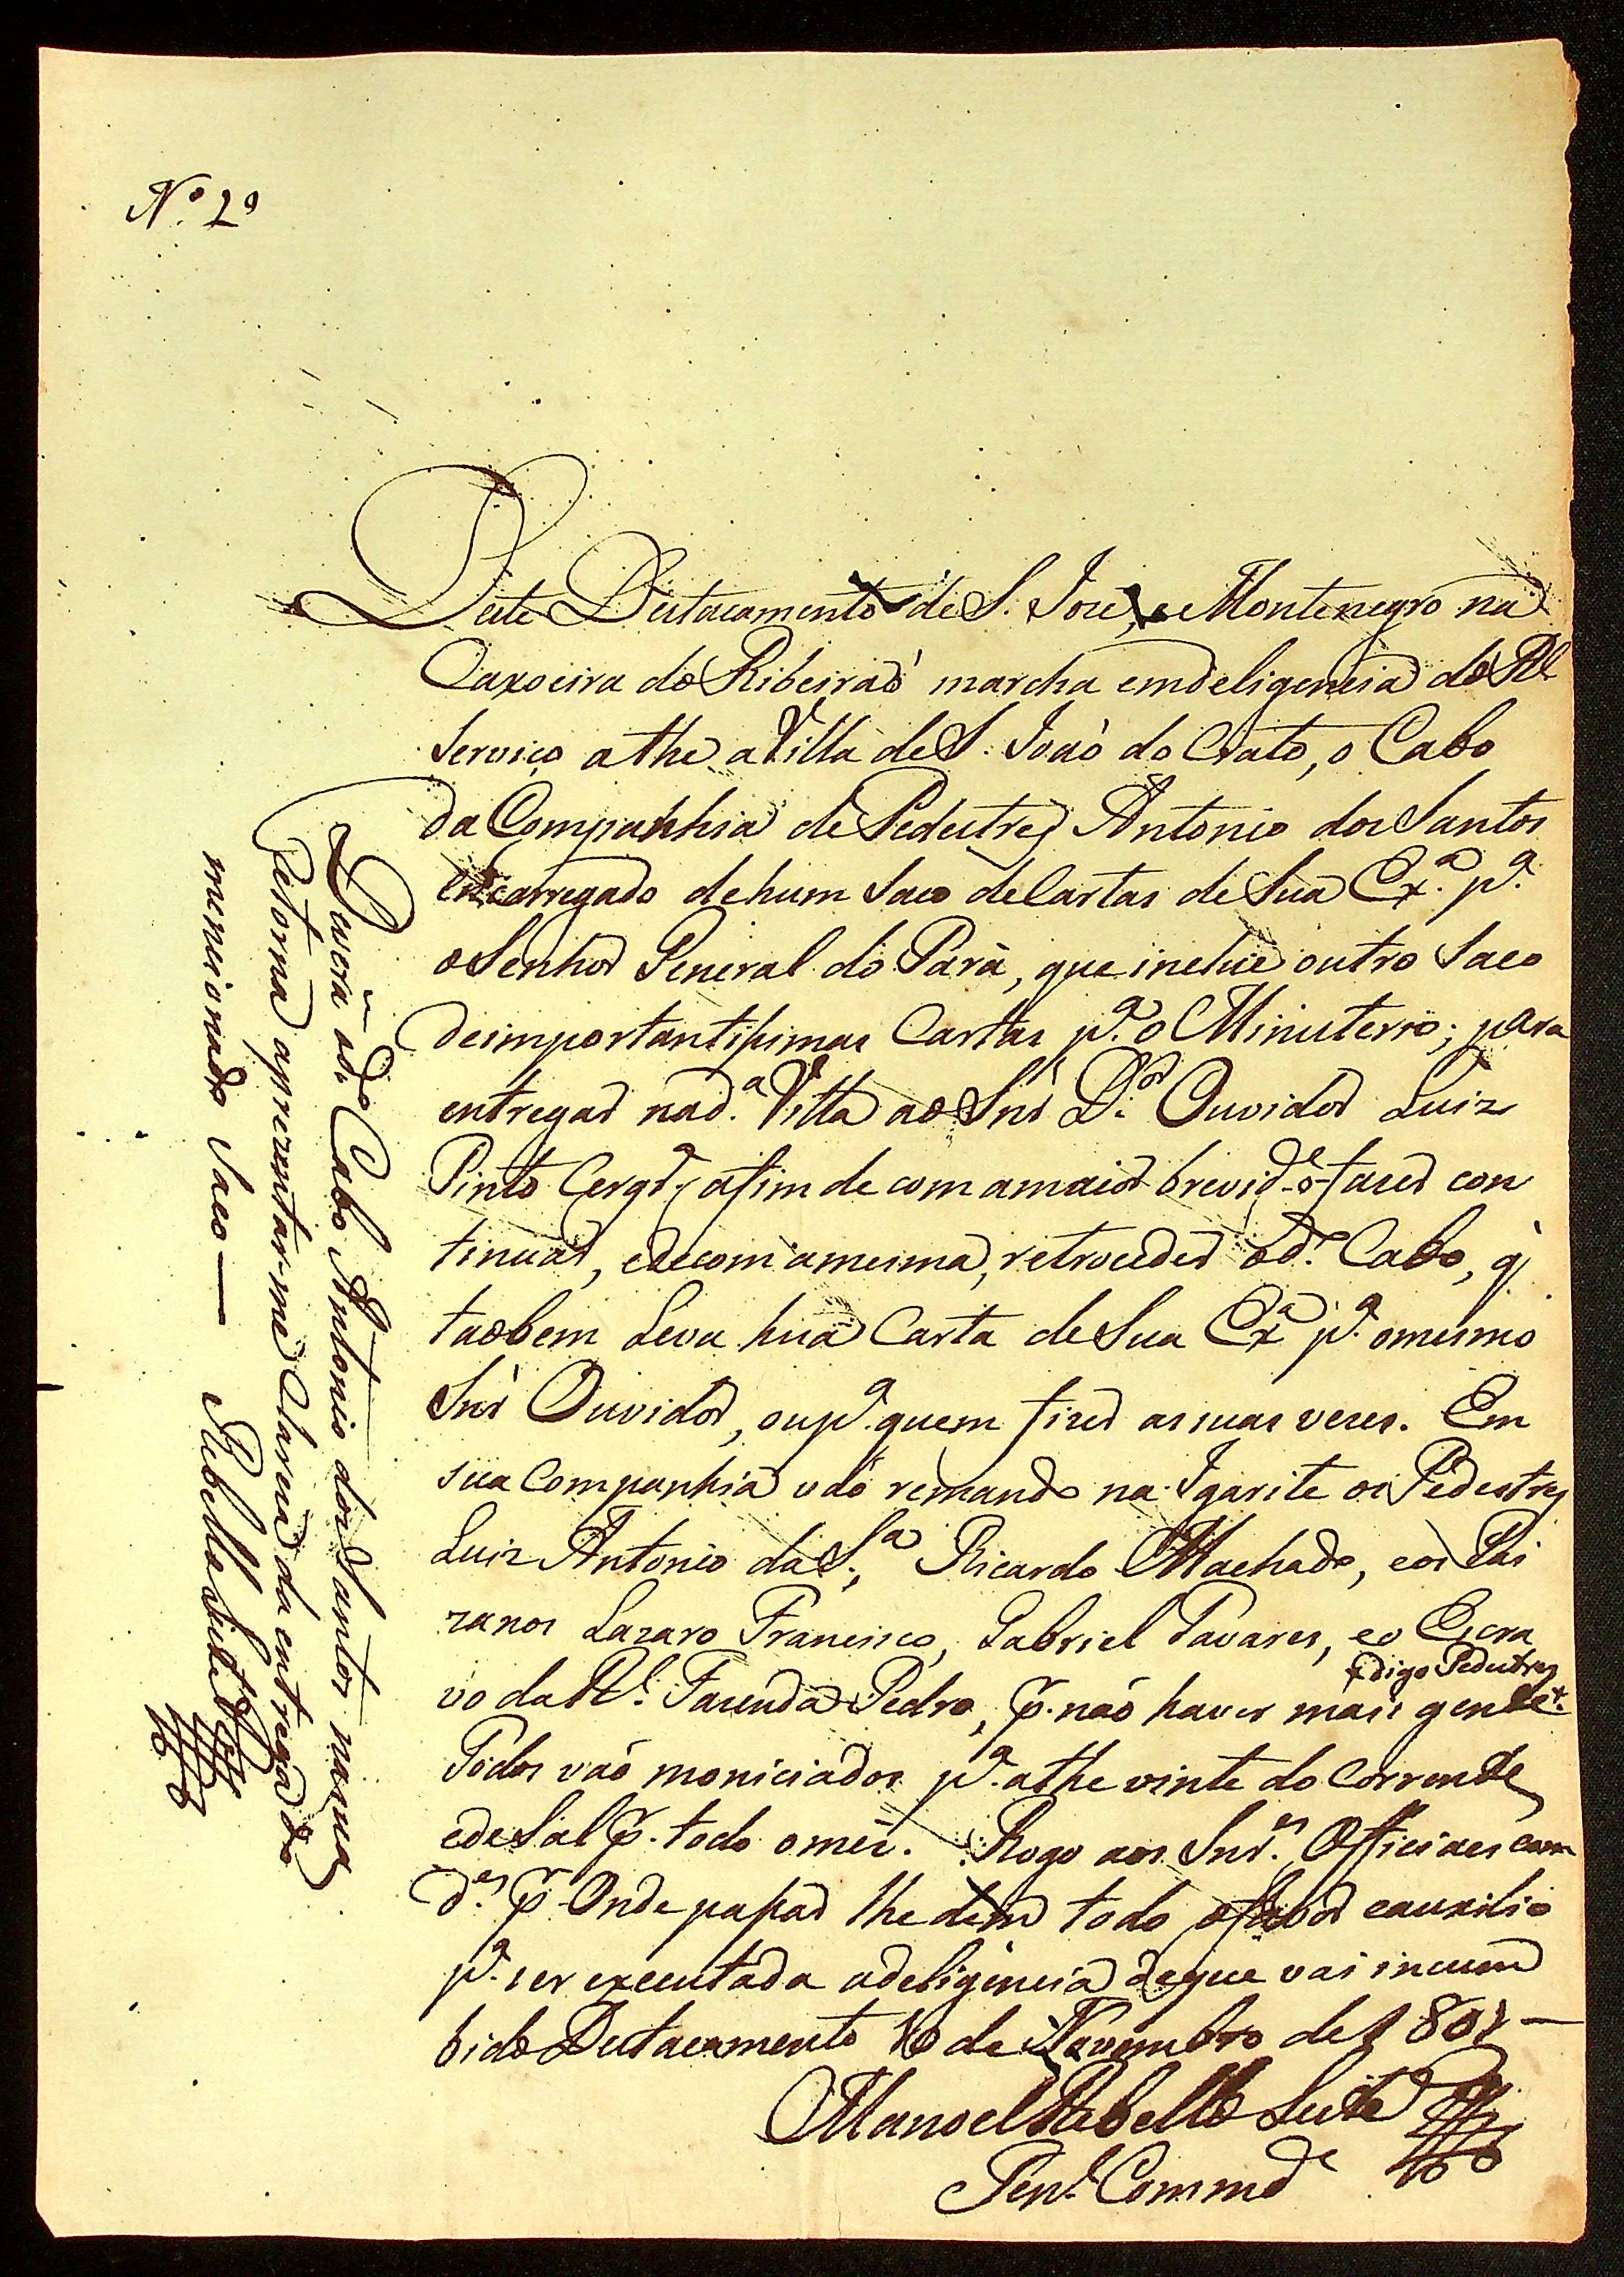 N.º 2º
Deste Destacamento de S. Joze, e Montenegro na
Caxoeira do Ribeiraõ marcha em deligencia do Rl
Serviço athe a Villa de S. Joaõ do Crato, o Cabo
da Companhia de Pedestres Antonio dos Santos
encarregado de hum Saco de Cartas de Sua Ex.ª p.ª
o Senhor General do Parà, que inclue outro Saco
de importantissimas Cartas p.ª o Ministerio; para
entregar na d.ª Villa ao Snr D.or Ouvidor Luiz
Pinto Cerqr.ª afim de com a maior brevid.e o fazer con
tinuar, e de com a mesma, retroceder o d.º Cabo, q̃
taobem Leva huã Carta de Sua Ex.ª p.ª o mesmo
Snr Ouvidor, ou p.ª quem fizer as suas vezes. Em
sua Companhia vaõ remando na Igarite os Pedestres
Luiz Antonio da S.ª, Ricardo Machado, e os Pai
zanos Lazaro Francisco, Gabriel Tavares, e o Escra
vo da R.l Fazenda Pedro, p.r naõ haver mais gente+.
+digo Pedestres
Todos vaõ moniciados p.ª athe vinte do Corrente
e de Sal p.r todo o mez. Rogo aos Snr.es Officiaes com
d.es p.r Onde passar lhe dem todo o favor e auxilio
p.ª ser executada a deligencia de que vai incum
bido Destacamento 10 de Novembro de 1801 —
Manoel Rabello Leite
Ten.e Commd.e
Devera o d.º Cabo Antonio dos Santos na sua
retorna aprezentar-me Clareza da entrega do
mencionado Saco — Rabello Leite